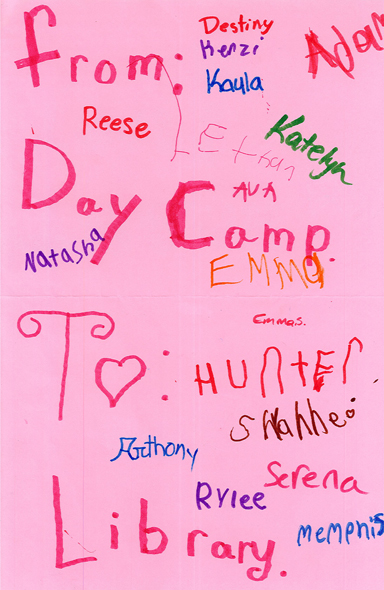 Destiny
Kenzi
Adam
from:
Kaula
Reese
Ethan
Katelyn
Day Camp.
AVA
Natasha
EMMA
Emma S.
To:
HUNtEr
Anthony
Serena
Rylee
Memphis
Library.